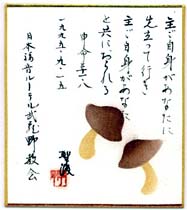 主ご自身があなたに
先立って行き
主ご自身があなたと
共におられる
申命三一・八
一九九五・九・一五
日本福音ルーテル武蔵野教会